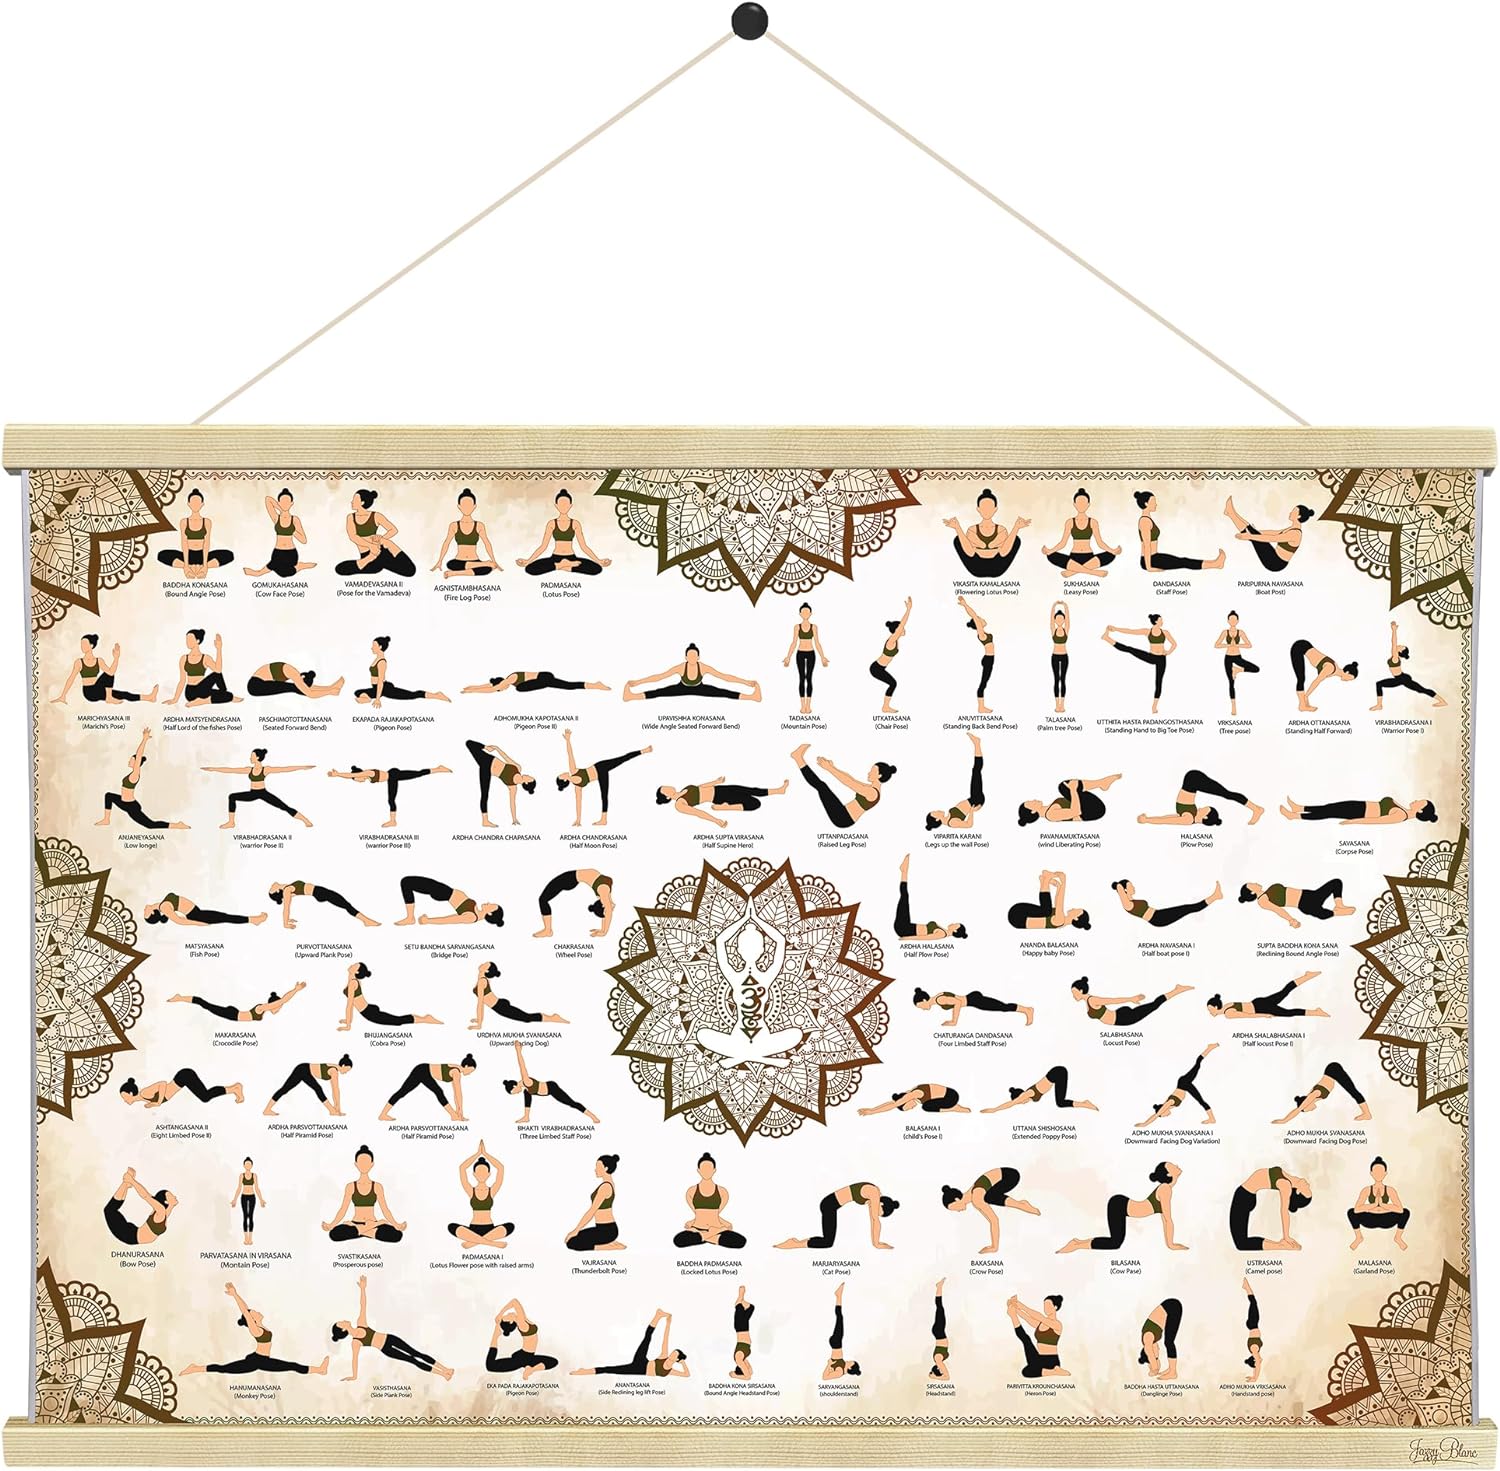 BADDHA KONASANA
(Bound Angle Pose)
GOMUKAHASANA
(Cow Face Pose)
VAMADEVASANA II
(Pose for the Vamadeva)
AGNISTAMBHASANA
(Fire Log Pose)
PADMASANA
(Lotus Pose)
VIKASITA KAMALASANA
(Flowering Lotus Pose)
SUKHASANA
(Leasy Pose)
DANDASANA
(Staff Pose)
PARIPURNA NAVASANA
(Boat Post)
MARICHYASANA III
(Marichi's Pose)
ARDHA MATSYENDRASANA
(Half Lord of the fishes Pose)
PASCHIMOTOTTANASANA
(Seated Forward Bend)
EKAPADA RAJAKAPOTASANA
(Pigeon Pose)
ADHOMUKHA KAPOTASANA II
(Pigeon Pose II)
UPAVISHHA KONASANA
(Wide Angle Seated Forward Bend)
TADASANA
(Mountain Pose)
UTKATASANA
(Chair Pose)
ANUVITTASANA
(Standing Back Bend Pose)
TALASANA
(Palm tree Pose)
UTTHITA HASTA PADANGOSTHASANA
(Standing Hand to Big Toe Pose)
VRKSASANA
(Tree pose)
ARDHA OTTANASANA
(Standing Half Forward)
VIRABHADRASANA I
(Warrior Pose I)
ANJANEYASANA
(Low longe)
VIRABHADRASANA II
(warrior Pose II)
VIRABHADRASANA III
(warrior Pose III)
ARDHA CHANDRA CHAPASANA
ARDHA CHANDRASANA
(Half Moon Pose)
ARDHA SUPTA VIRASANA
(Half Supine Hero)
UTTANPADASANA
(Raised Leg Pose)
VIPARITA KARANI
(Legs up the wall Pose)
PAVANAMUKTASANA
(wind Liberating Pose)
HALASANA
(Plow Pose)
SAVASANA
(Corpse Pose)
MATSYASANA
(Fish Pose)
PURVOTTANASANA
(Upward Plank Pose)
SETU BANDHA SARVANGASANA
(Bridge Pose)
CHAKRASANA
(Wheel Pose)
ARDHA HALASANA
(Half Plow Pose)
ANANDA BALASANA
(Happy baby Pose)
ARDHA NAVASANA I
(Half boat pose I)
SUPTA BADDHA KONA SANA
(Reclining Bound Angle Pose)
MAKARASANA
(Crocodile Pose)
BHUJANGASANA
(Cobra Pose)
URDHVA MUKHA SVANASANA
(Upward Facing Dog)
ॐ
CHATURANGA DANDASANA
(Four Limbed Staff Pose)
SALABHASANA
(Locust Pose)
ARDHA SHALABHASANA I
(Half locust Pose I)
ASHTANGASANA II
(Eight Limbed Pose II)
ARDHA PARSVOTTANASANA
(Half Piramid Pose)
ARDHA PARSVOTTANASANA
(Half Piramid Pose)
BHAKTI VIRABHADRASANA
(Three Limbed Staff Pose)
BALASANA I
(child's Pose I)
UTTANA SHISHOSANA
(Extended Poppy Pose)
ADHO MUKHA SVANASANA I
(Downward Facing Dog Variation)
ADHO MUKHA SVANASANA
(Downward Facing Dog Pose)
DHANURASANA
(Bow Pose)
PARVATASANA IN VIRASANA
(Montain Pose)
SVASTIKASANA
(Prosperous pose)
PADMASANA I
(Lotus Flower pose with raised arms)
VAJRASANA
(Thunderbolt Pose)
BADDHA PADMASANA
(Locked Lotus Pose)
MARJARYASANA
(Cat Pose)
BAKASANA
(Crow Pose)
BILASANA
(Cow Pase)
USTRASANA
(Camel pose)
MALASANA
(Garland Pose)
HANUMANASANA
(Monkey Pose)
VASISTHASANA
(Side Plank Pose)
EKA PADA RAJAKAPOTASANA
(Pigeon Pose)
ANANTASANA
(Side Reclining leg lift Pose)
BADDHA KONA SIRSASANA
(Bound Angle Headstand Pose)
SARVANGASANA
(shoulderstand)
SIRSASANA
(Headstand)
PARIVITTA KROUNCHASANA
(Heron Pose)
BADDHA HASTA UTTANASANA
(Danglinge Pose)
ADHO MUKHA VRKSASANA
(Handstand pose)
Jazzy Blanc